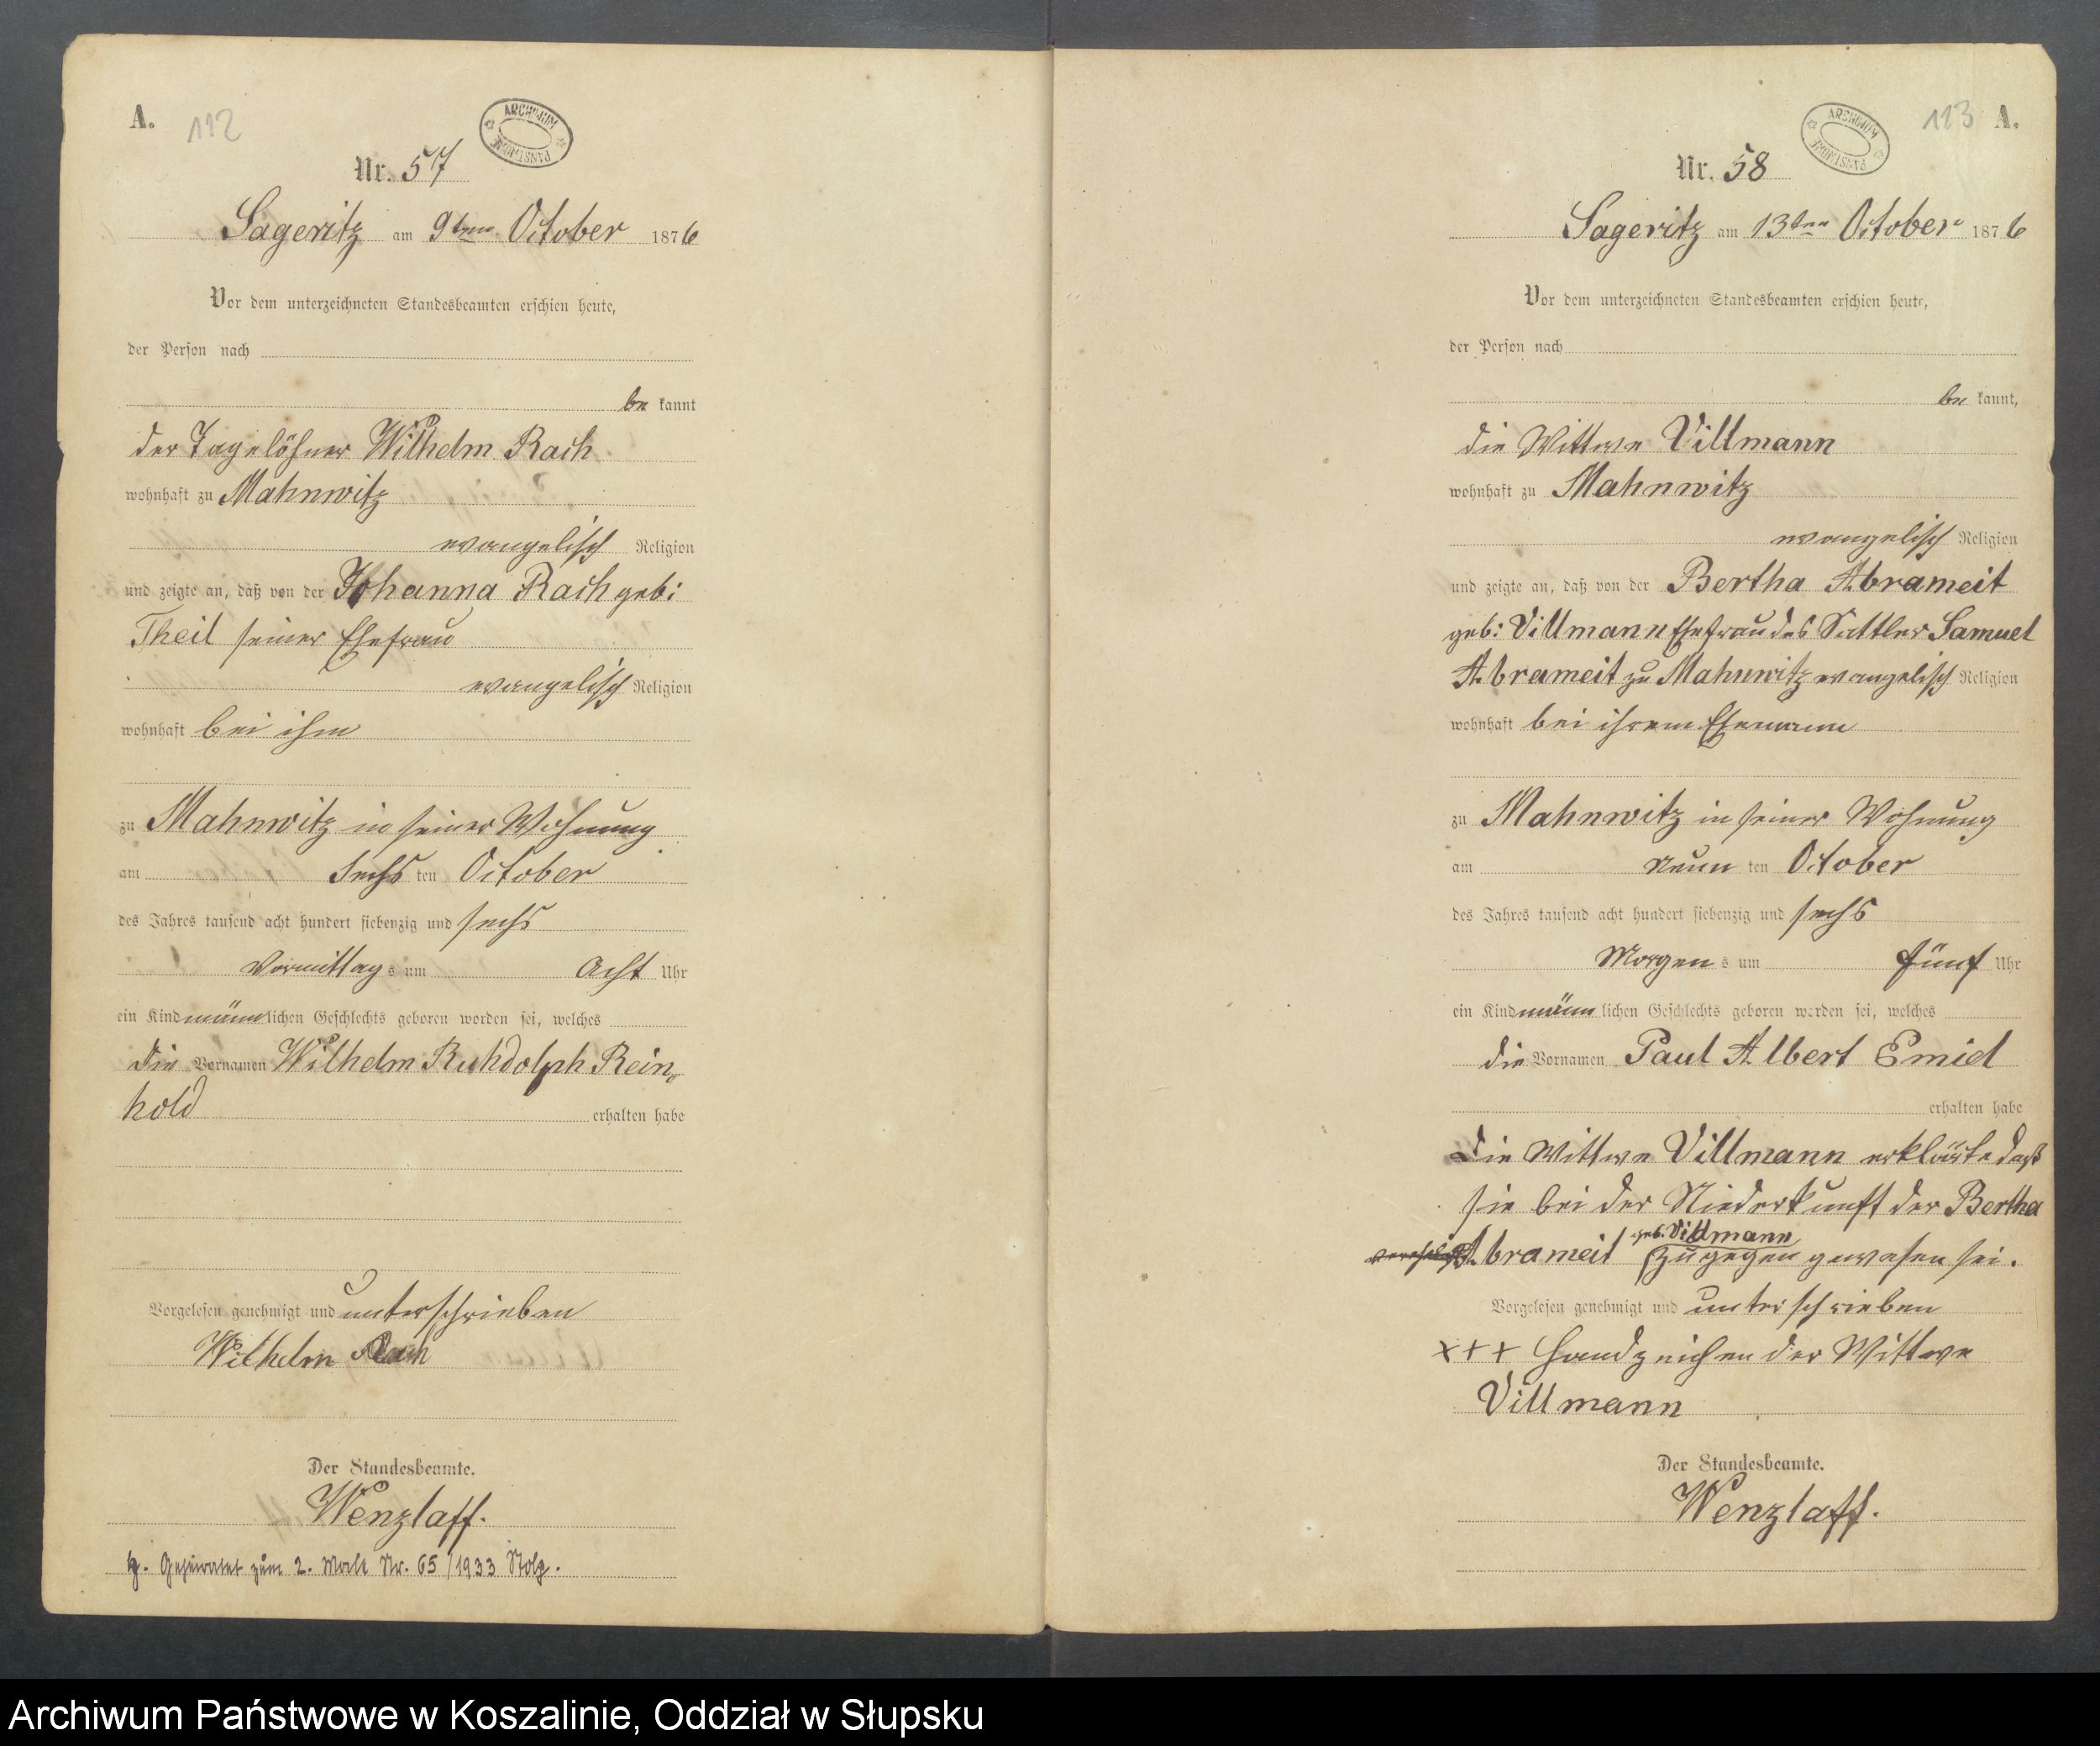 A.
112
ARCHIWUM PAŃSTWOWE
Nr. 57
Sageritz am 9ten October 1876
Vor dem unterzeichneten Standesbeamten erschien heute,
der Person nach
be kannt
der Tagelöhner Wilhelm Rach
wohnhaft zu Mahnwitz
evangelisch Religion
und zeigte an, daß von der Johanna Rach geb:
Theil seiner Ehefrau
evangelisch Religion
wohnhaft bei ihm
zu Mahnwitz in seiner Wohnung
am Sechs ten October
des Jahres tausend acht hundert siebenzig und sechs
Vormittag s um Acht Uhr
ein Kind männlichen Geschlechts geboren worden sei, welches
die Vornamen Wilhelm Ruhdolph Rein„
hold erhalten habe
Vorgelesen genehmigt und unterschrieben
Wilhelm Rach
Der Standesbeamte.
Wenzlaff.
G. Geheiratet zum 2. Male Nr. 65/1933 Stolp.
113 A.
ARCHIWUM PAŃSTWOWE
Nr. 58
Sageritz am 13ten October 1876
Vor dem unterzeichneten Standesbeamten erschien heute,
der Person nach
be kannt,
die Wittwe Villmann
wohnhaft zu Mahnwitz
evangelisch Religion
und zeigte an, daß von der Bertha Abrameit
geb: Villmann Ehefrau des Sattler Samuel
Abrameit zu Mahnwitz evangelisch Religion
wohnhaft bei ihrem Ehemann
zu Mahnwitz in seiner Wohnung
am Neun ten October
des Jahres tausend acht hundert siebenzig und sechs
Morgen s um fünf Uhr
ein Kind männlichen Geschlechts geboren worden sei, welches
die Vornamen Paul Albert Emiel
erhalten habe
Die Wittwe Villmann erklärte daß
sie bei der Niederkunft der Bertha
geb. Villmann
Abrameit zugegen gewesen sei.
Vorgelesen genehmigt und unterschrieben
+++ Handzeichen der Wittwe
Villmann
Der Standesbeamte.
Wenzlaff.
Archiwum Państwowe w Koszalinie, Oddział w Słupsku